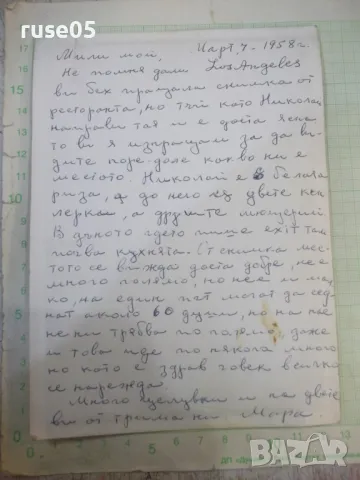 ruse05
Мили мои, Март, 4. – 1958 г.
Не помня дали Los Angeles
ви бех пращала снимка от
ресторанта, но тъй като Николай
направи тая и е доста ясна
то ви я изпращам за да ви-
дите горе-доле какво ни е
местото. Николай е в бела
риза, а до него са двете
а другите
В дъното гдето пише exit там
почва кухнята. От снимка мес-
тото се вижда доста добре, не е
много големо, но не е и мал-
ко, на един път могат да сед-
нат около 60 души, но на нас
не ни трябва по големо, даже
и това иде по некога много
но като е здрав човек всичко
се нарежда.
Много целувки и на двете
ви от трима ни Мара.
BAZAR